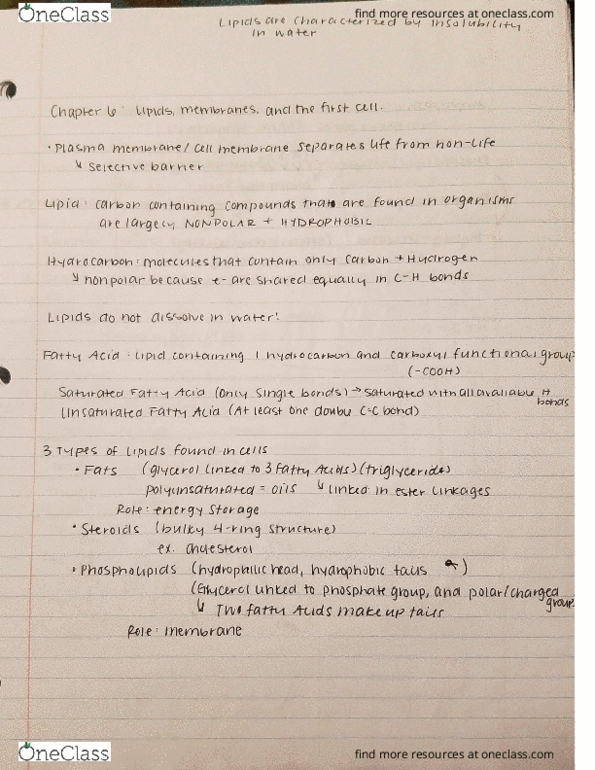 OneClass
find more resources at oneclass.com
Lipids are characterized by insolubility
in water
Chapter 6: Lipids, membranes, and the first cell.
• Plasma membrane/cell membrane separates life from non-life
↳ selective barrier
Lipid: carbon containing compounds that are found in organisms
are largely NONPOLAR + HYDROPHOBIC
Hydrocarbon: molecules that contain only carbon + Hydrogen
↳ nonpolar because e- are shared equally in C-H bonds
Lipids do not dissolve in water!
Fatty Acid: Lipid containing 1 hydrocarbon and carboxyl functional group
(-COOH)
Saturated Fatty Acid (only single bonds) → saturated with all available H
bonds
Unsaturated Fatty Acid (At least one double C-C bond)
3 Types of Lipids found in cells
• Fats (glycerol linked to 3 fatty Acids) (triglyceride)
polyunsaturated = oils ↳ linked in ester linkages
Role: energy storage
• Steroids (bulky 4-ring structure)
ex. cholesterol
• Phospholipids (hydrophilic head, hydrophobic tails )
(Glycerol linked to phosphate group, and polar/charged
group
↳ Two fatty Acids make up tails
Role: membrane
OneClass
find more resources at oneclass.com